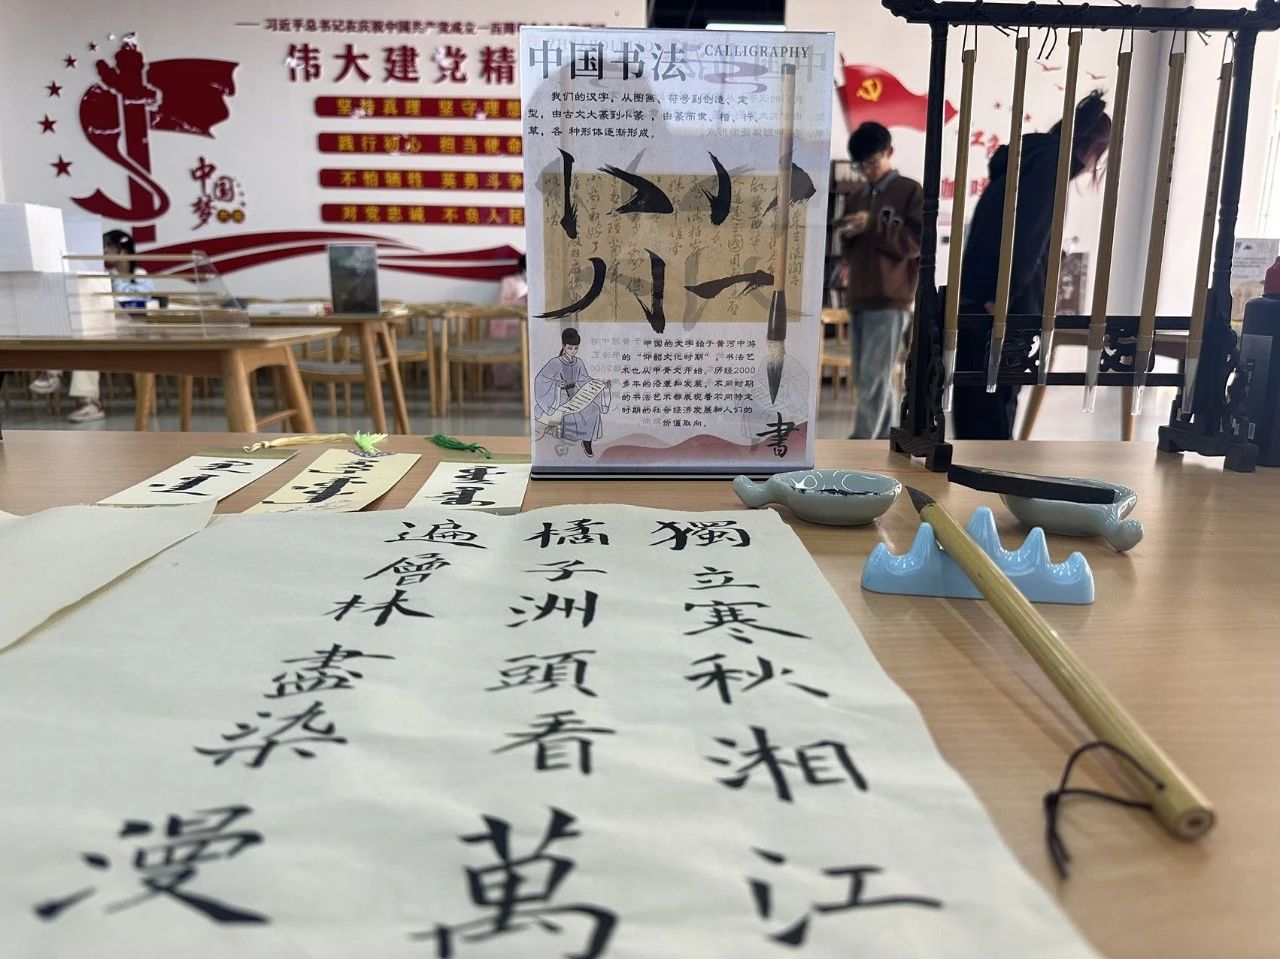 —— 习近平总书记在庆祝中国共产党成立一百周年
伟大建党精
坚持真理 坚守理想
践行初心 担当使命
不怕牺牲 英勇斗争
对党忠诚 不负人民
中国梦
中国书法
CALLIGRAPHY
我们的汉字，从图画、符号到创造、定
型，由古文大篆到小篆，由篆而隶、楷、行、
草，各种形体逐渐形成。
中国的文字始于黄河中游
的“仰韶文化时期”，书法艺
术也从甲骨文开始，历经2000
多年的沿革和发展，不同时期
的书法艺术都表现着不同特定
时期的社会经济发展和人们的
价值取向。
書
獨立寒秋湘江
橘子洲頭看萬
遍層林盡染漫